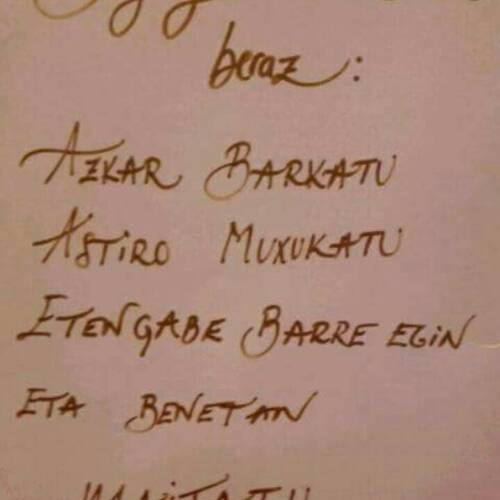 beraz:
AZKAR BARKATU
ASTIRO MUXUKATU
ETENGABE BARRE EGIN
ETA BENETAN
MAITATU